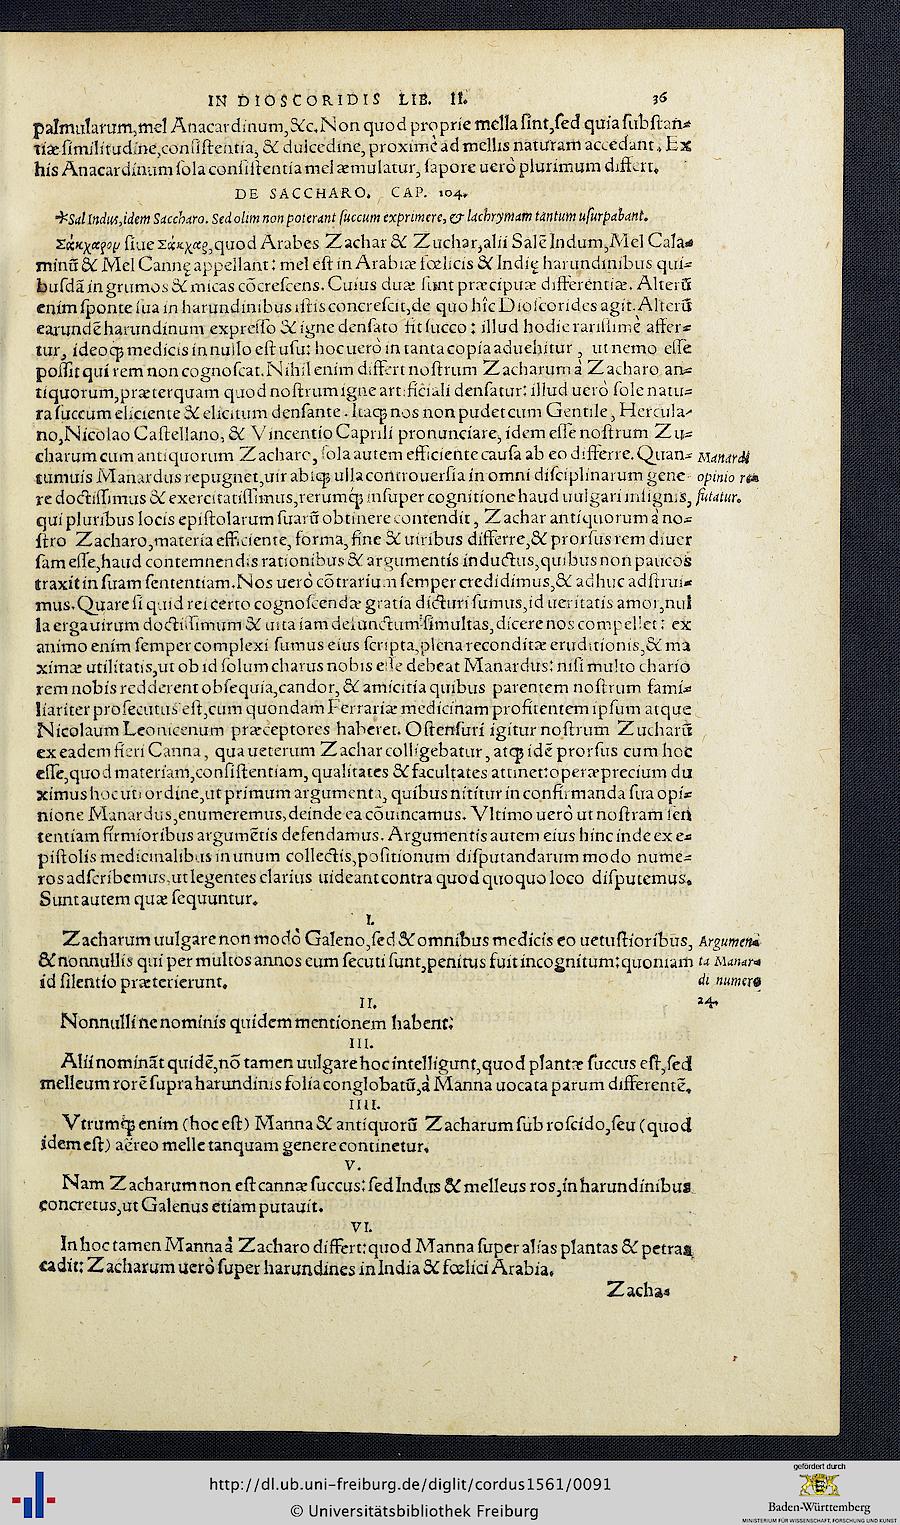 IN DIOSCORIDIS LIB. II. 36
palmularum,mel Anacardinum,&c.Non quod proprie mella ſint,ſed quia ſubſtan⸗
tiæ ſimilitudine,conſiſtentia, & dulcedine, proximè ad mellis naturam accedant. Ex
his Anacardinum ſola conſiſtentia mel æmulatur, ſapore uerò plurimum differt.
DE SACCHARO. CAP. 104.
*Sal Indus,idem Saccharo. Sed olim non poterant ſuccum exprimere, & lachrymam tantum uſurpabant.
Σάκχαρον ſiue Σάκχαρ,quod Arabes Zachar & Zuchar,alii Salē Indum,Mel Cala⸗
minū & Mel Cannę appellant: mel eſt in Arabiæ fœlicis & Indię harundinibus qui⸗
buſdā in grumos & micas cōcreſcens. Cuius duæ ſunt præcipuæ differentiæ. Alterū
enim ſponte ſua in harundinibus iſtis concreſcit,de quo hîc Dioſcorides agit. Alterū
earundē harundinum expreſſo & igne denſato fit ſucco: illud hodie rariſſimè affer⸗
tur, ideoq́ medicis in nullo eſt uſu: hoc uerò in tanta copia aduehitur, ut nemo eſſe
poſſit qui rem non cognoſcat. Nihil enim differt noſtrum Zacharum à Zacharo an⸗
tiquorum,præterquam quod noſtrum igne artificiali denſatur: illud uerò ſole natu⸗
ra ſuccum eliciente & elicitum denſante. Itaq́ nos non pudet cum Gentile, Hercula⸗
no,Nicolao Caſtellano, & Vincentio Caprili pronunciare, idem eſſe noſtrum Zu⸗
charum cum antiquorum Zacharo, ſola autem efficiente cauſa ab eo differre. Quan⸗
Manardi
tumuis Manardus repugnet,uir abiq́ ulla controuerſia in omni diſciplinarum gene⸗
opinio re⸗
re doctiſſimus & exercitatiſſimus,rerumq́ inſuper cognitione haud uulgari inſignis,
futatur.
qui pluribus locis epiſtolarum ſuarū obtinere contendit, Zachar antiquorum à no⸗
ſtro Zacharo,materia efficiente, forma, fine & uiribus differre,& prorſus rem diuer
ſam eſſe,haud contemnendis rationibus & argumentis inductus,quibus non paucos
traxit in ſuam ſententiam.Nos uerò cōtrarium ſemper credidimus,& adhuc adſtrui⸗
mus.Quare ſi quid rei certo cognoſcendæ gratia dicturi ſumus,id ueritatis amor,nul
la erga uirum doctiſſimum & uita iam defunctum ſimultas, dicere nos compellet: ex
animo enim ſemper complexi ſumus eius ſcripta,plena reconditæ eruditionis,& ma
ximæ utilitatis,ut ob id ſolum charus nobis eſſe debeat Manardus: niſi multo chario
rem nobis redderent obſequia,candor, & amicitia quibus parentem noſtrum fami⸗
liariter proſecutus eſt,cum quondam Ferrariæ medicinam profitentem ipſum atque
Nicolaum Leonicenum præceptores haberet. Oſtenſuri igitur noſtrum Zucharū
ex eadem fieri Canna, qua ueterum Zachar colligebatur, atq́ idē prorſus cum hoc
eſſe,quod materiam,conſiſtentiam, qualitates & facultates attinet:operæprecium du
ximus hoc uti ordine,ut primum argumenta, quibus nititur in confirmanda ſua opi⸗
nione Manardus,enumeremus,deinde ea cōuincamus. Vltimo uerò ut noſtram ſen
tentiam firmioribus argumētis defendamus. Argumentis autem eius hinc inde ex e⸗
piſtolis medicinalibus in unum collectis,poſitionum diſputandarum modo nume⸗
ros adſcribemus,ut legentes clarius uideant contra quod quoquo loco diſputemus.
Sunt autem quæ ſequuntur.
I.
Zacharum uulgare non modò Galeno,ſed & omnibus medicis eo uetuſtioribus,
Argumen⸗
& nonnullis qui per multos annos eum ſecuti ſunt,penitus fuit incognitum:quoniam
ta Manar⸗
id ſilentio præterierunt.
di numero
24.
II.
Nonnulli ne nominis quidem mentionem habent:
III.
Alii nomināt quidē,nō tamen uulgare hoc intelligunt,quod plantæ ſuccus eſt,ſed
melleum rorē ſupra harundinis folia conglobatū,à Manna uocata parum differentē.
IIII.
Vtrumq́ enim (hoc eſt) Manna & antiquorū Zacharum ſub roſcido,ſeu (quod
idem eſt) aëreo melle tanquam genere continetur.
V.
Nam Zacharum non eſt cannæ ſuccus: ſed Indus & melleus ros,in harundinibus
concretus,ut Galenus etiam putauit.
VI.
In hoc tamen Manna à Zacharo differt:quod Manna ſuper alias plantas & petras
cadit: Zacharum uerò ſuper harundines in India & fœlici Arabia.
Zacha⸗
http://dl.ub.uni-freiburg.de/diglit/cordus1561/0091
© Universitätsbibliothek Freiburg
gefördert durch
Baden-Württemberg
MINISTERIUM FÜR WISSENSCHAFT, FORSCHUNG UND KUNST